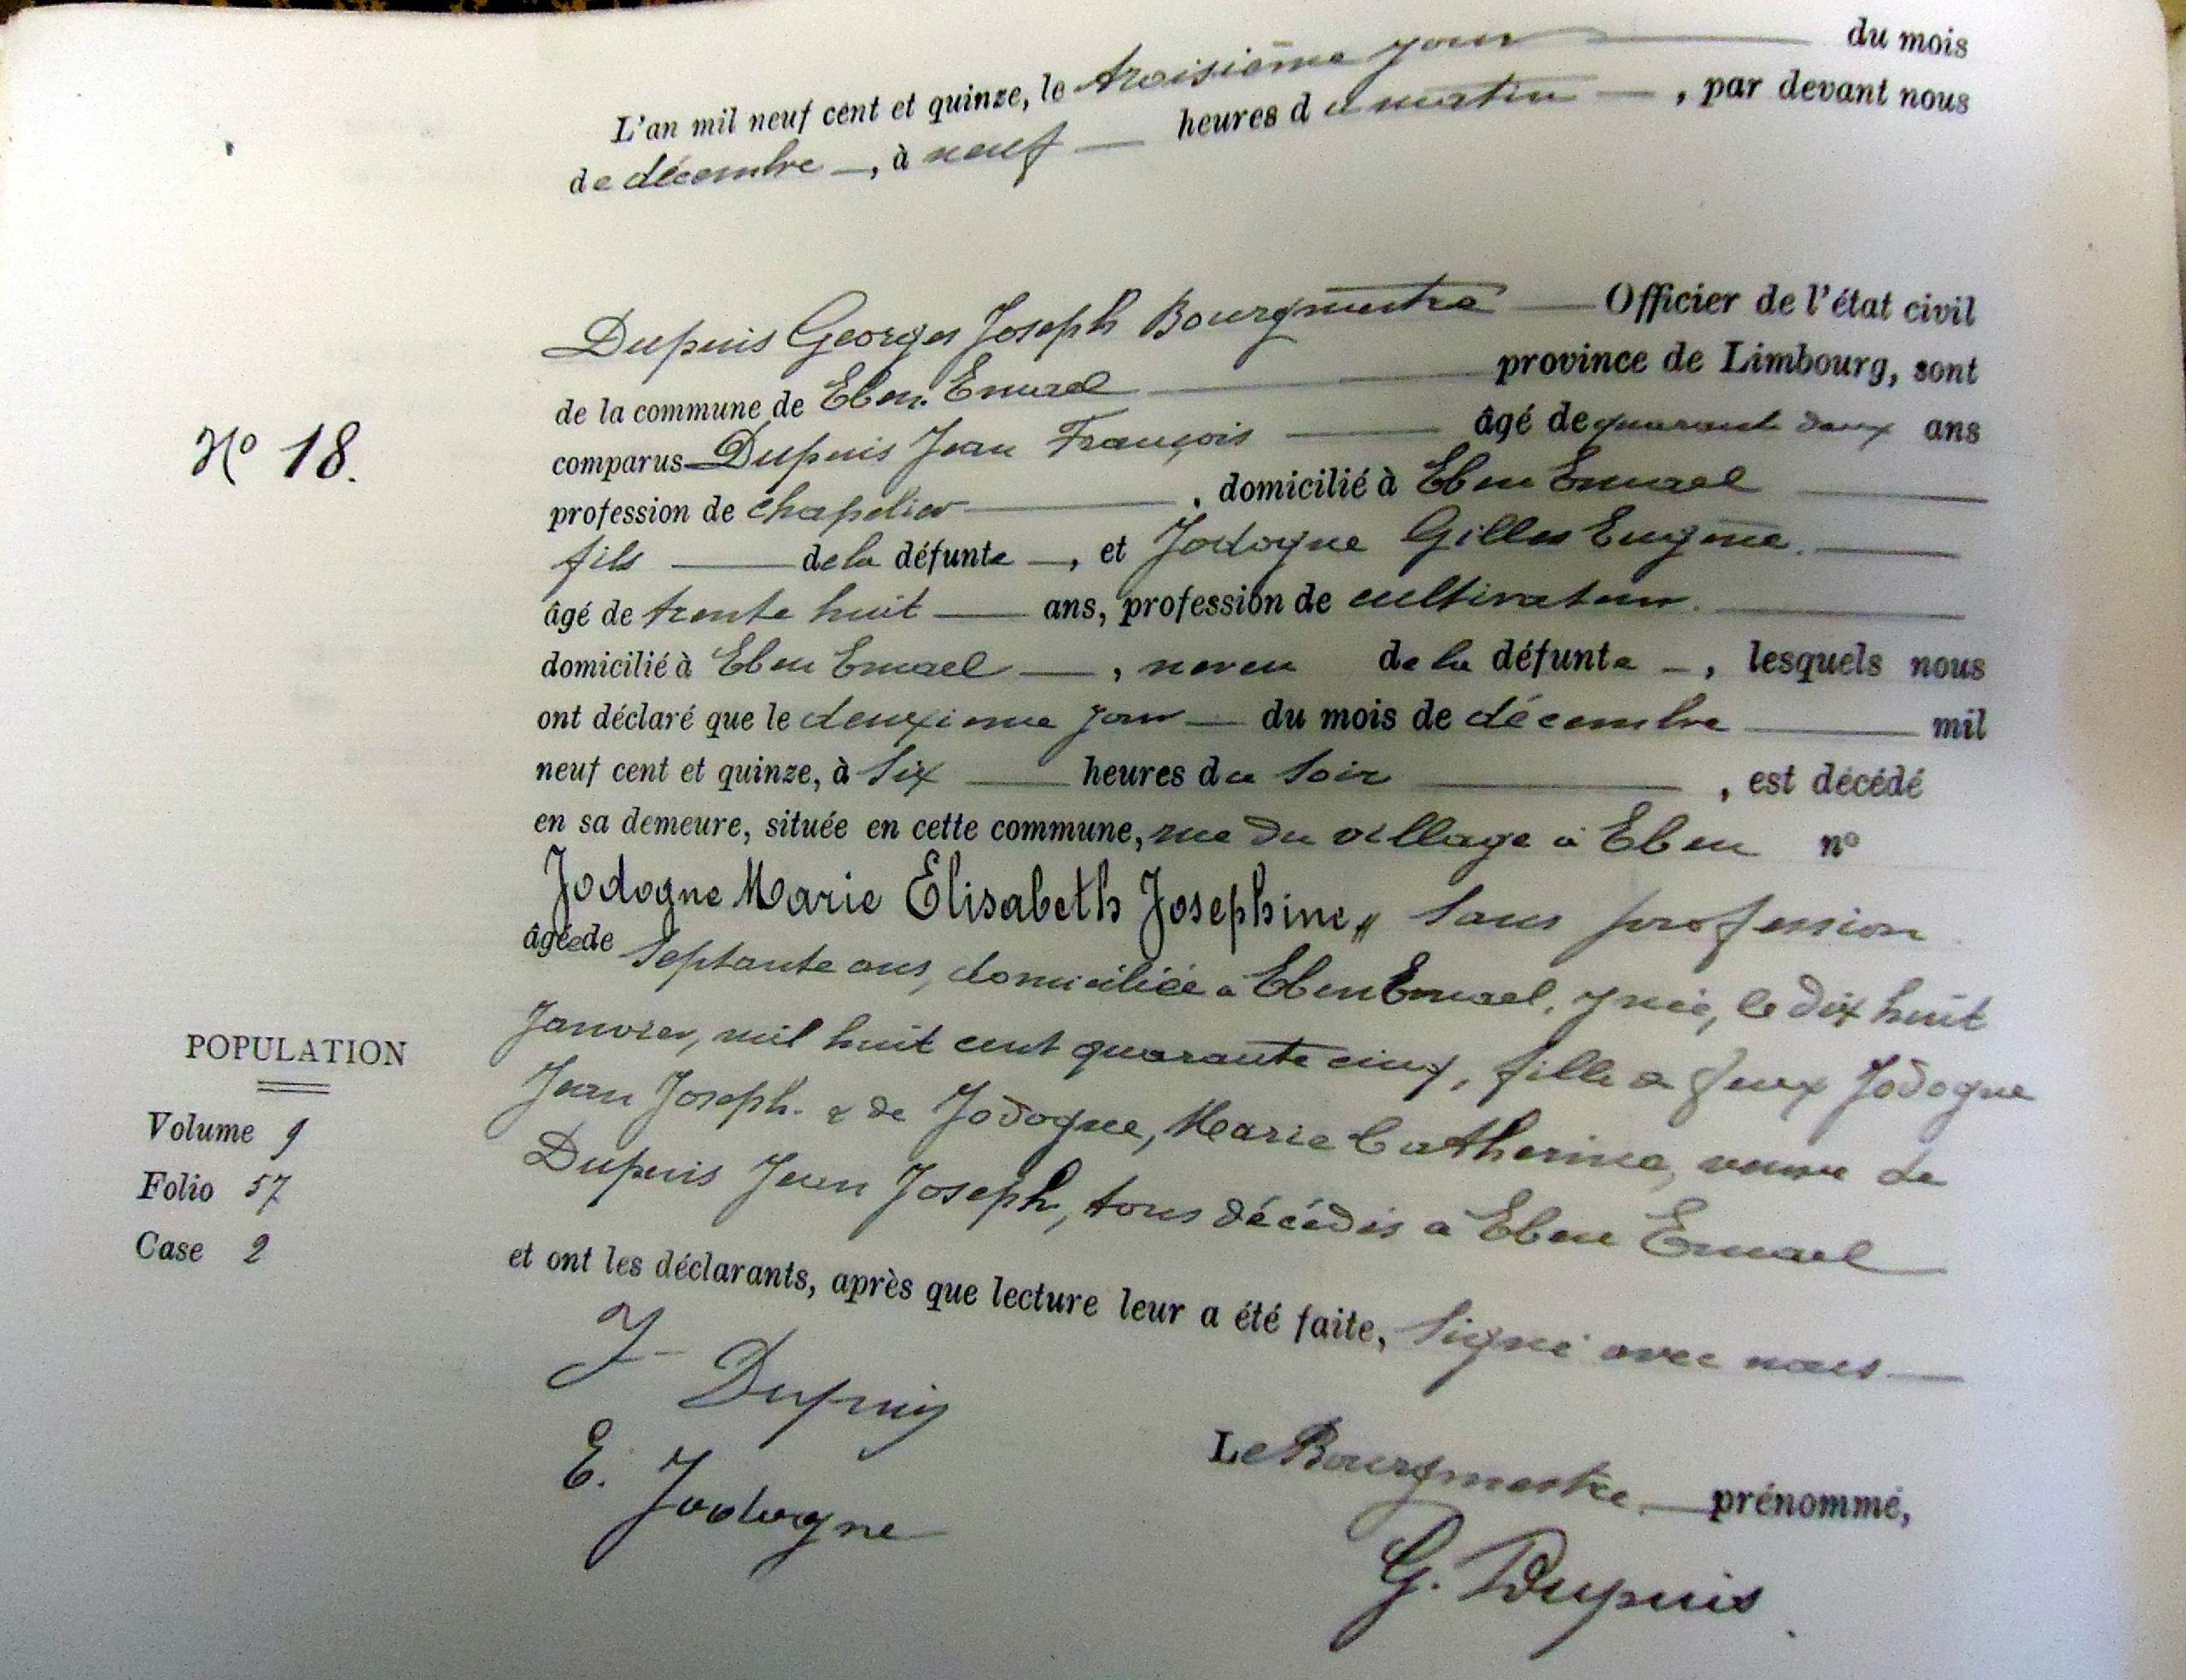 L'an mil neuf cent et quinze, le troisième jour du mois
de décembre, à neuf heures du matin, par devant nous
Dupuis Georges Joseph Bourgmestre Officier de l'état civil
de la commune de Eben Emael province de Limbourg, sont
comparus Dupuis Jean François âgé de quarante deux ans
profession de chapelier, domicilié à Eben Emael
fils de la défunte, et Jodogne Gilles Eugène.
âgé de trente huit ans, profession de cultivateur.
domicilié à Eben Emael, neveu de la défunte, lesquels nous
ont déclaré que le deuxième jour du mois de décembre mil
neuf cent et quinze, à six heures du soir, est décédé
en sa demeure, située en cette commune, rue du village à Eben n°
Jodogne Marie Elisabeth Josephine, sans profession
âgée de septante ans, domiciliée à Eben Emael, y née, le dix huit
Janvier, mil huit cent quarante cinq, fille de feux Jodogne
Jean Joseph. & de Jodogne, Marie Catherine, veuve de
Dupuis Jean Joseph, tous décédés à Eben Emael
et ont les déclarants, après que lecture leur a été faite, signé avec nous
J Dupuis
E. Jodogne
Le Bourgmestre prénommé,
G. Dupuis
N° 18.
POPULATION
Volume 9
Folio 57
Case 2